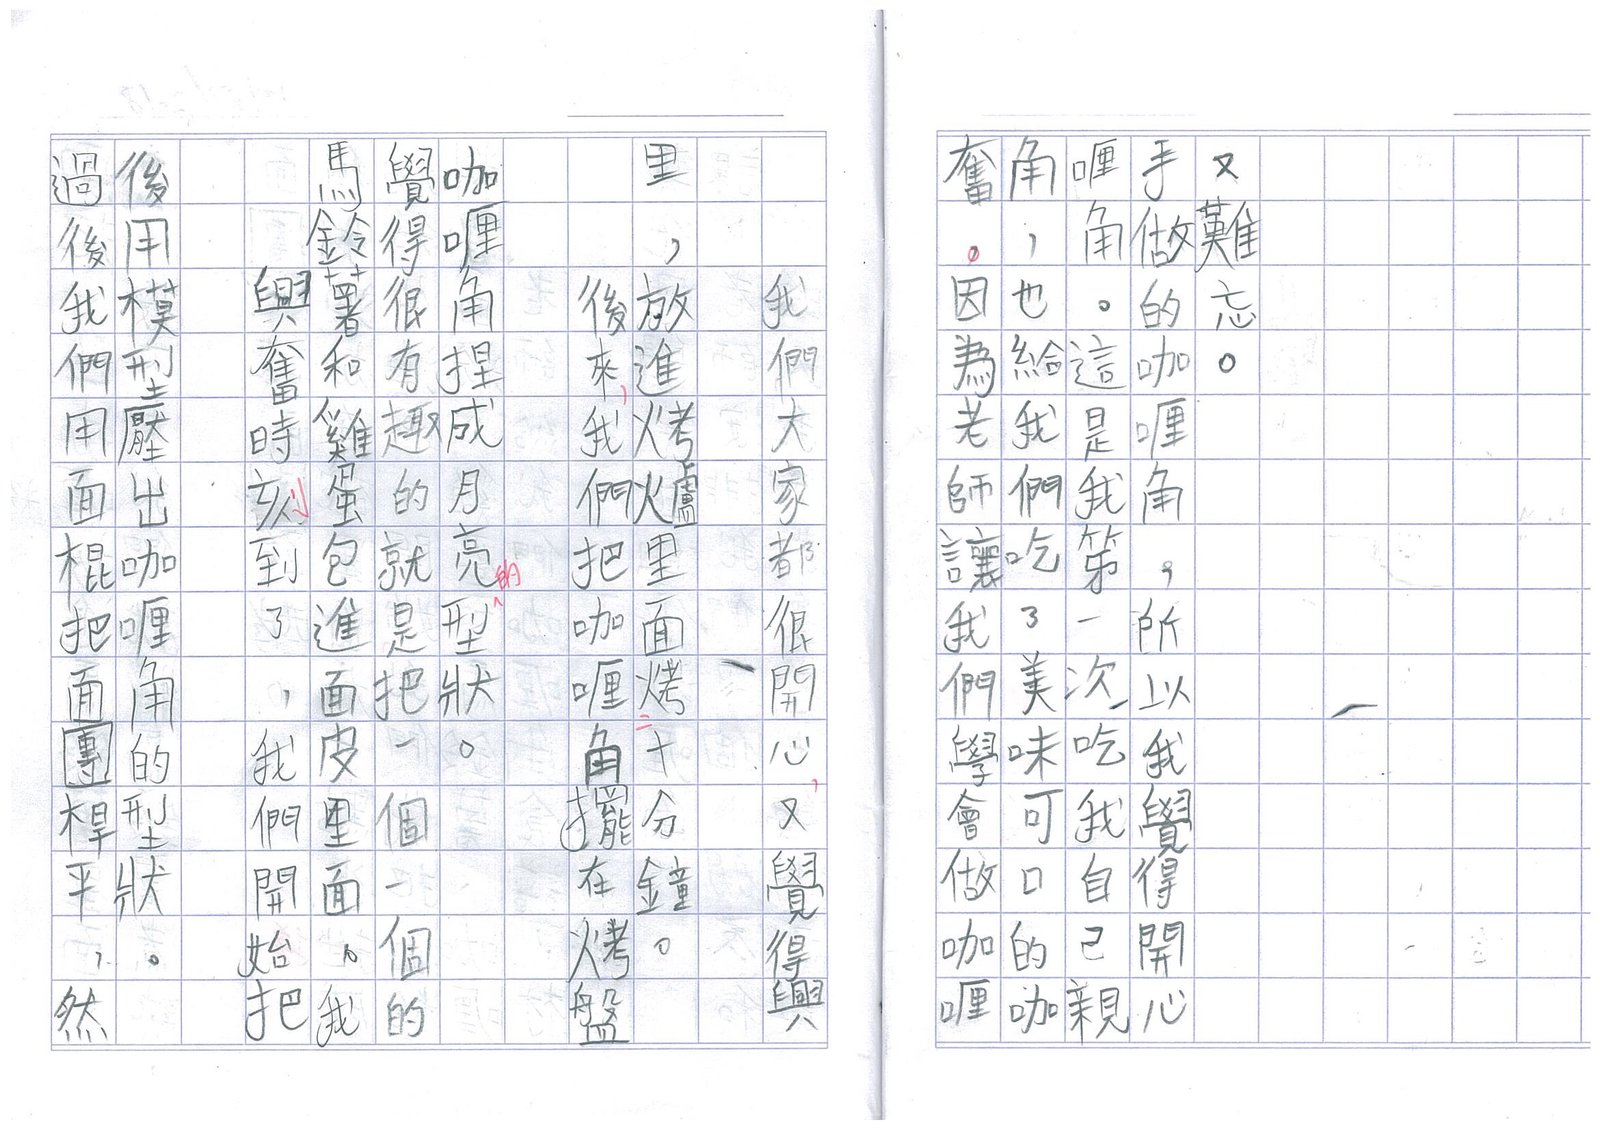 過後我們用面棍把面團桿平，然
後用模型壓出咖喱角的型狀。
興奮時刻到了，我們開始把
馬鈴薯和雞蛋包進面皮里面。我
覺得很有趣的就是把一個個的
咖喱角捏成月亮的型狀。
後來，我們把咖喱角擺在烤盤
里，放進烤爐里面烤十分鐘。
我們大家都很開心，又覺得興
奮。因為老師讓我們學會做咖喱
角，也給我們吃了美味可口的咖
喱角。這是我第一次吃我自己親
手做的咖喱角，所以我覺得開心
又難忘。